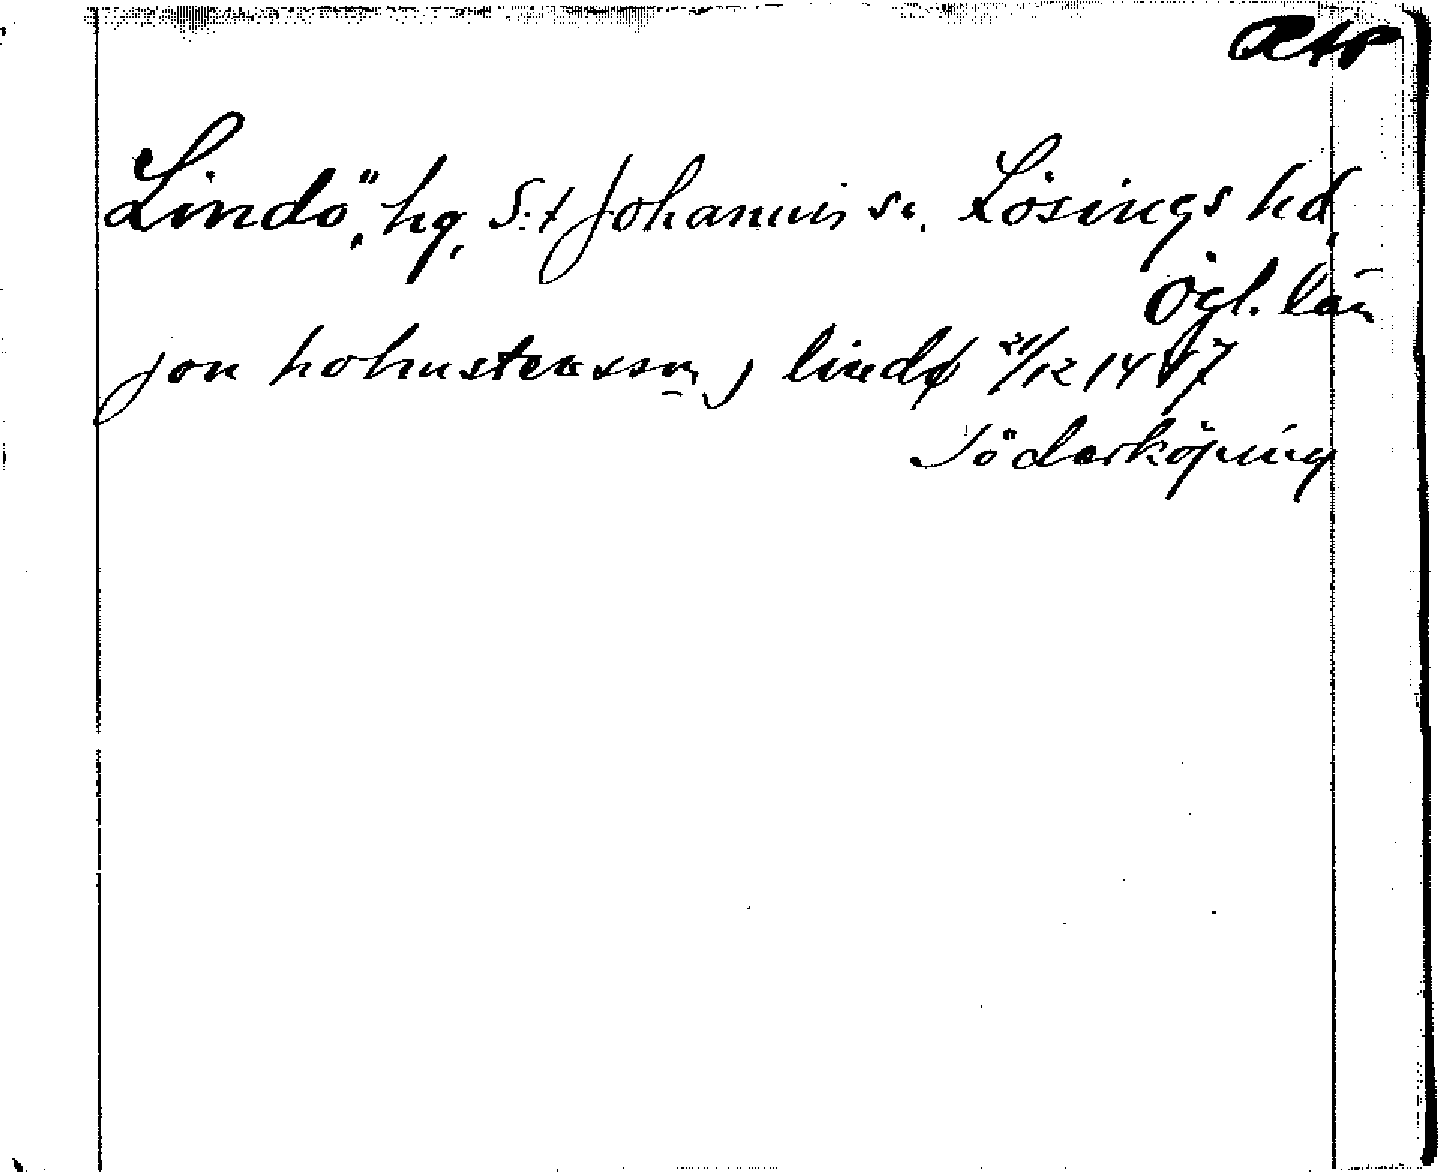 Lindö, hg, S:t Johannis sn, Lösings hd,
Ögl. län
jon holmstensson j lindø 21/12 1447
Söderköping